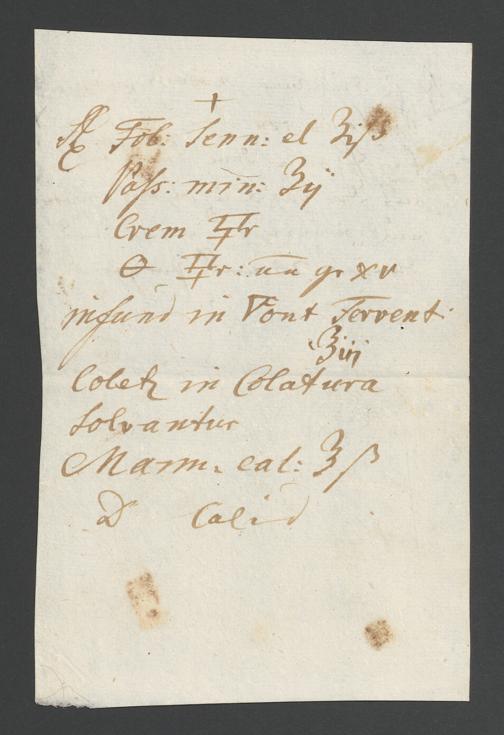 +
℞ Fol: Senn: el ʒiß
Pass: min: ʒij
Crem 🜿r
🜔 🜿r: aa gr xv
infund in Font Fervent:
℥iij
Coletz in Colatura
Solvantur
Mann. cal: ℥ß
D Calid